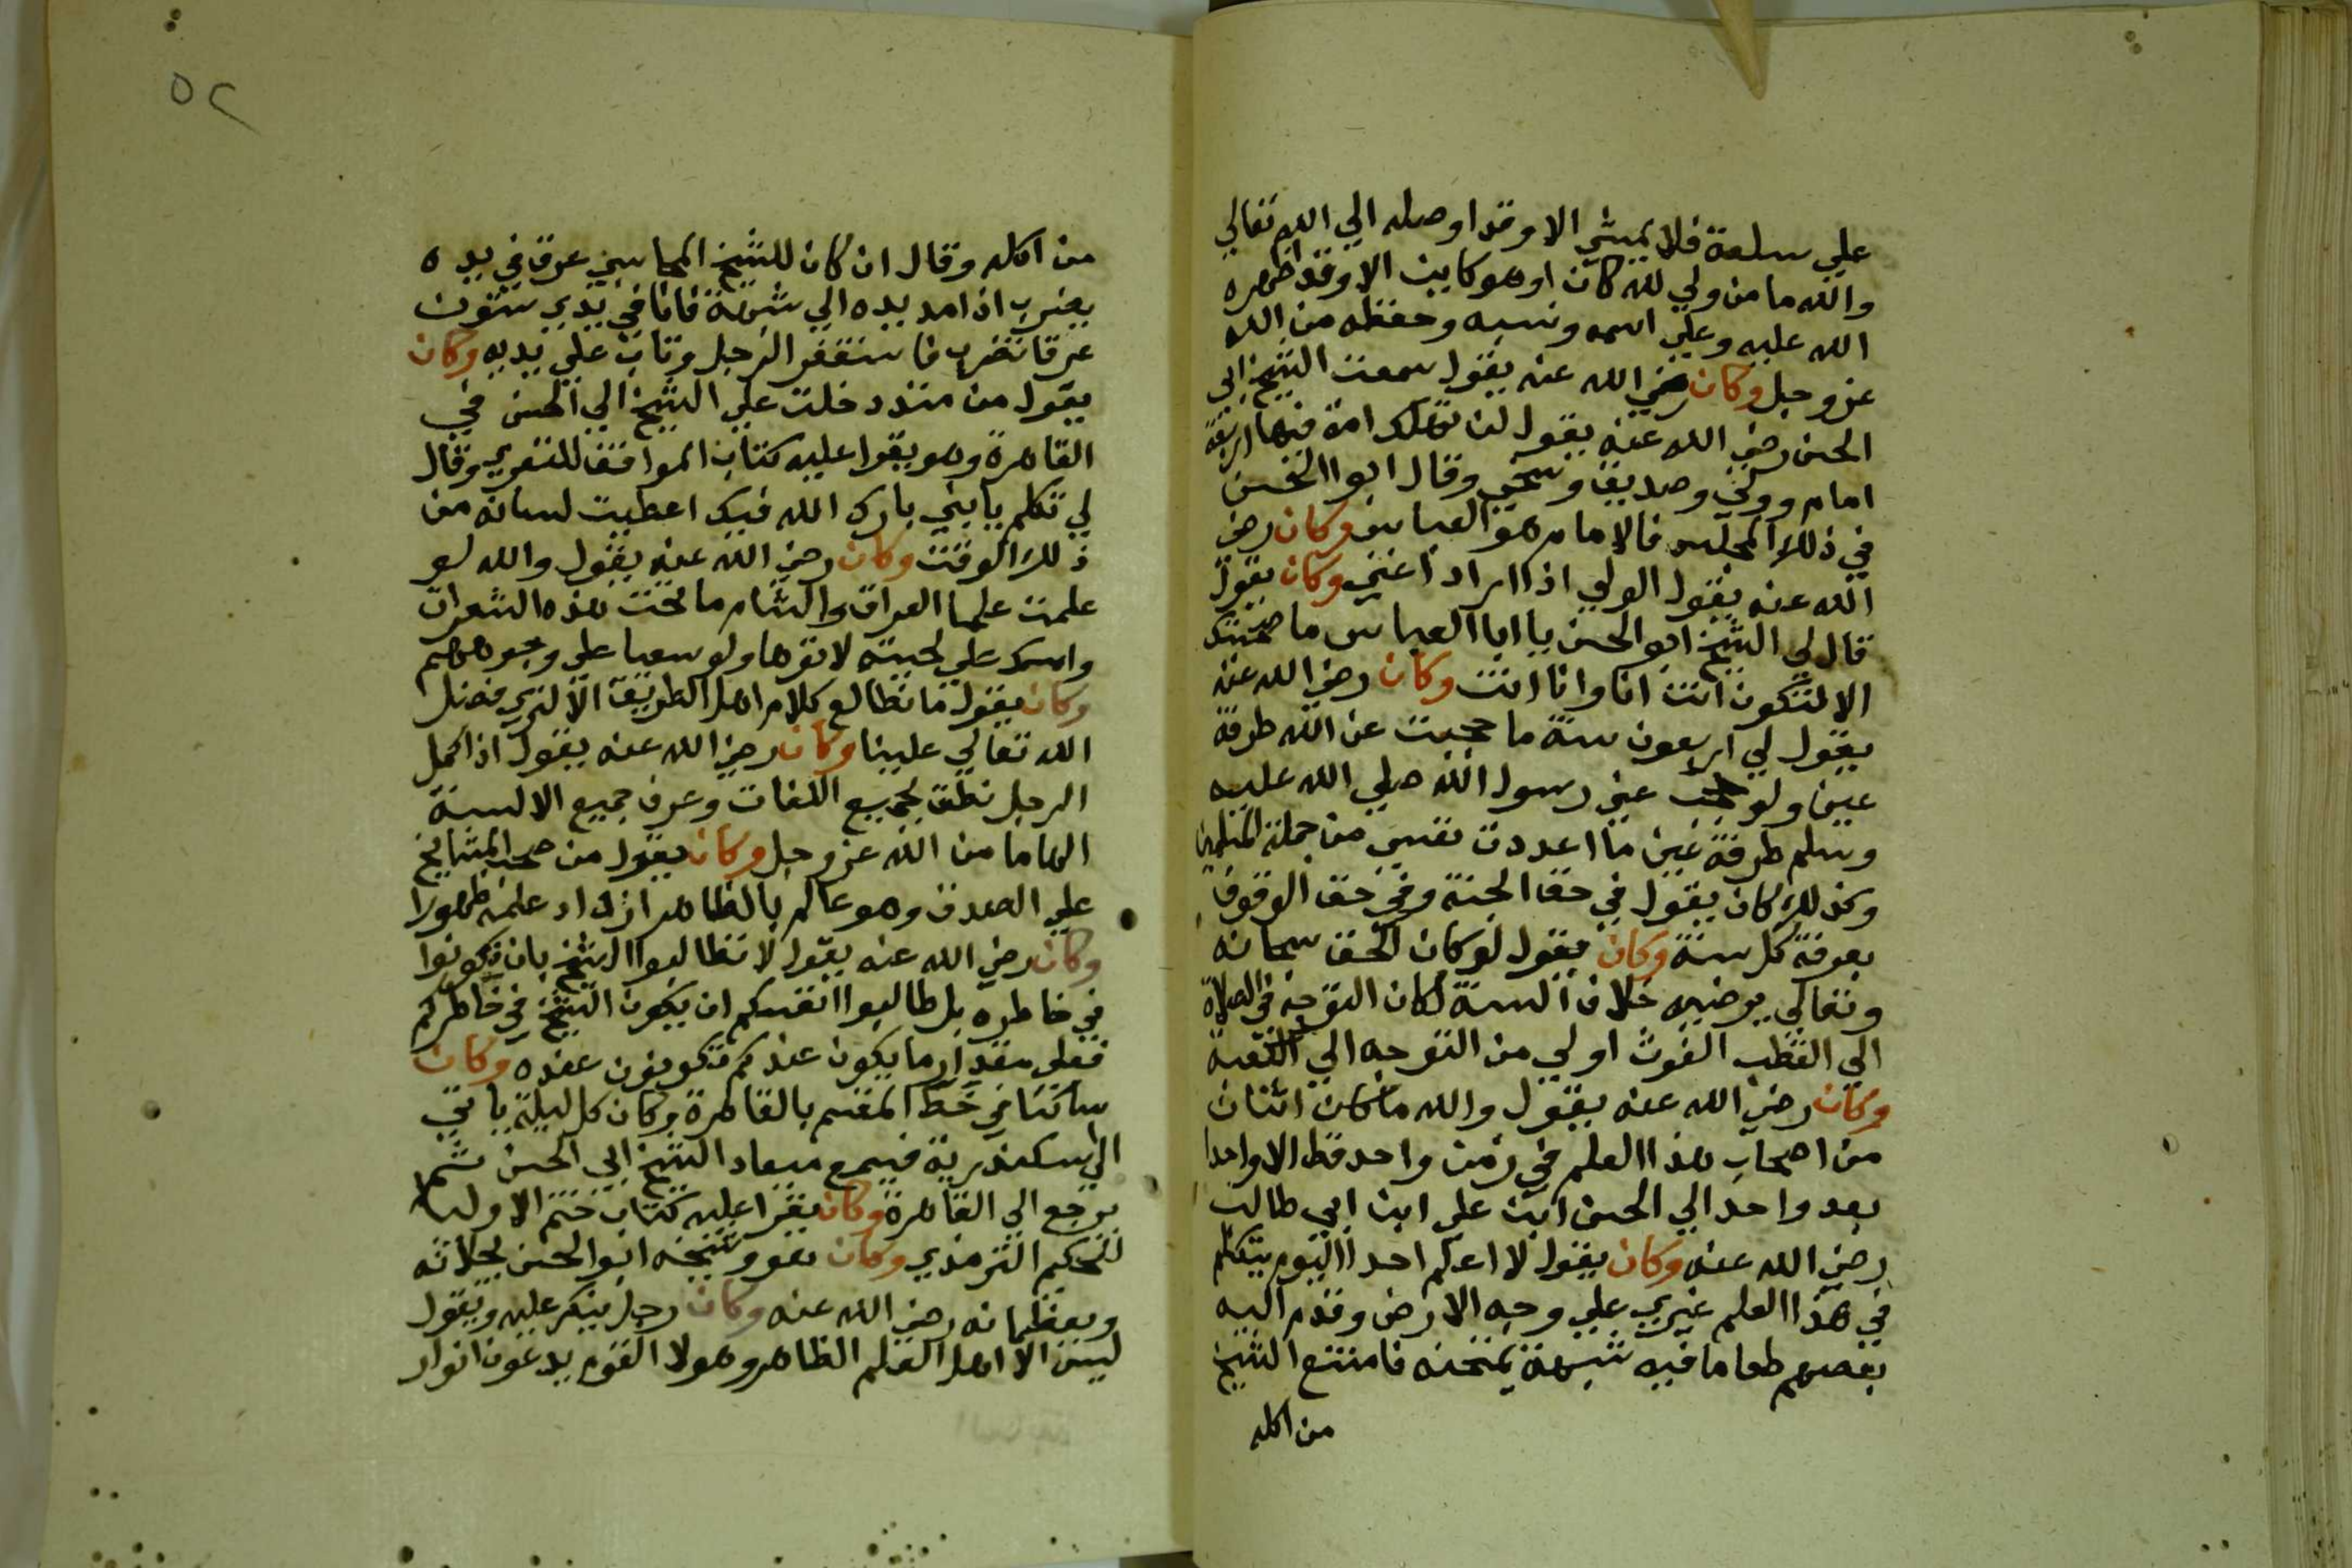 على سلعة فلا يمشي الا وقد اوصله الي الله تعالي
والله ما من ولي لله كان او هو كاين الا وقد اظهره
الله عليه وعلي اسمه ونسبه وحفظه من الله
عز وجل وكان رضي الله عنه يقول سمعت الشيخ ابي
الحسن رضي الله عنه يقول لن تهلك امة فيها اربعة
امام وولي وصديق وسخي وقال ابوا الحسن
في ذلك المجلس فالامام هو العباس وكان رضي
الله عنه يقول الولي اذا اراد اغني وكان يقول
قال لي الشيخ ابو الحسن يا ابا العباس ما صحبتك
الا لتكون انت انا وانا انت وكان رضي الله عنه
يقول لي اربعون سنة ما حجبت عن الله طرفة
عين ولو حجب عني رسول الله صلي الله عليه
وسلم طرفة عين ما اعددت نفسي من جملة المسلمين
وكذلك كان يقول في حق الجنة وفي حق الوقوف
بعرفة كل سنة وكان يقول لو كان الحق سبحانه
وتعالي يرضيه خلاف السنة لكان التوجه في الصلاة
الي القطب الغوث اولي من التوجه الي الكعبة
وكان رضي الله عنه يقول والله ما كان اثنان
من اصحاب هذا العلم في زمن واحد قط الا واحدا
بعد واحد الي الحسن ابن علي ابن ابي طالب
رضي الله عنه وكان يقول لا اعلم احدا اليوم يتكلم
في هذا العلم غيري علي وجه الارض وقدم اليه
بعضهم طعاما فيه شبهة يمتحنه فامتنع الشيخ
من اكله
٥٢
من اكله وقال ان كان للشيخ المحاسبي عرق في يده
يضرب اذا مد يده الي شبهة فانا في يدي ستون
عرقا تضرب فاستغفر الرجل وتاب علي يديه وكان
يقول من منذ دخلت علي الشيخ ابي الحسن في
القاهرة وهو يقرا عليه كتاب المواقف للنفري وقال
لي تكلم يا بني بارك الله فيك اعطيت لسانه من
ذلك الوقت وكان رضي الله عنه يقول والله لو
علمت علما العراق والشام ما تحت هذه الشعرات
وامسك علي لحيته لاتوها ولو سعيا علي وجوههم
وكان يقول ما نطالع كلام اهل الطريق الا لنري فضل
الله تعالي علينا وكان رضي الله عنه يقول اذا كمل
الرجل نطق بجميع اللغات وعرف جميع الالسنة
الهاما من الله عز وجل وكان يقول من صحب المشايخ
علي الصدق وهو عالم بالظاهر ازداد علمه ظهورا
وكان رضي الله عنه يقول لا تطالبوا الشيخ بان تكونوا
في خاطره بل طالبوا انفسكم ان يكون الشيخ في خاطركم
فعلي مقدار ما يكون عندكم تكونون عنده وكان
ساكنا في خط المقسم بالقاهرة وكان كل ليلة ياتي
الي اسكندرية فيسمع ميعاد الشيخ ابي الحسن ثم
يرجع الي القاهرة وكان يقرا عليه كتاب ختم الاوليا
للحكيم الترمذي وكان هو وشيخه ابو الحسن يجلانه
ويعظمانه رضي الله عنه وكان رجل ينكر عليه ويقول
ليس الا اهل العلم الظاهر وهولا القوم يدعون انوار